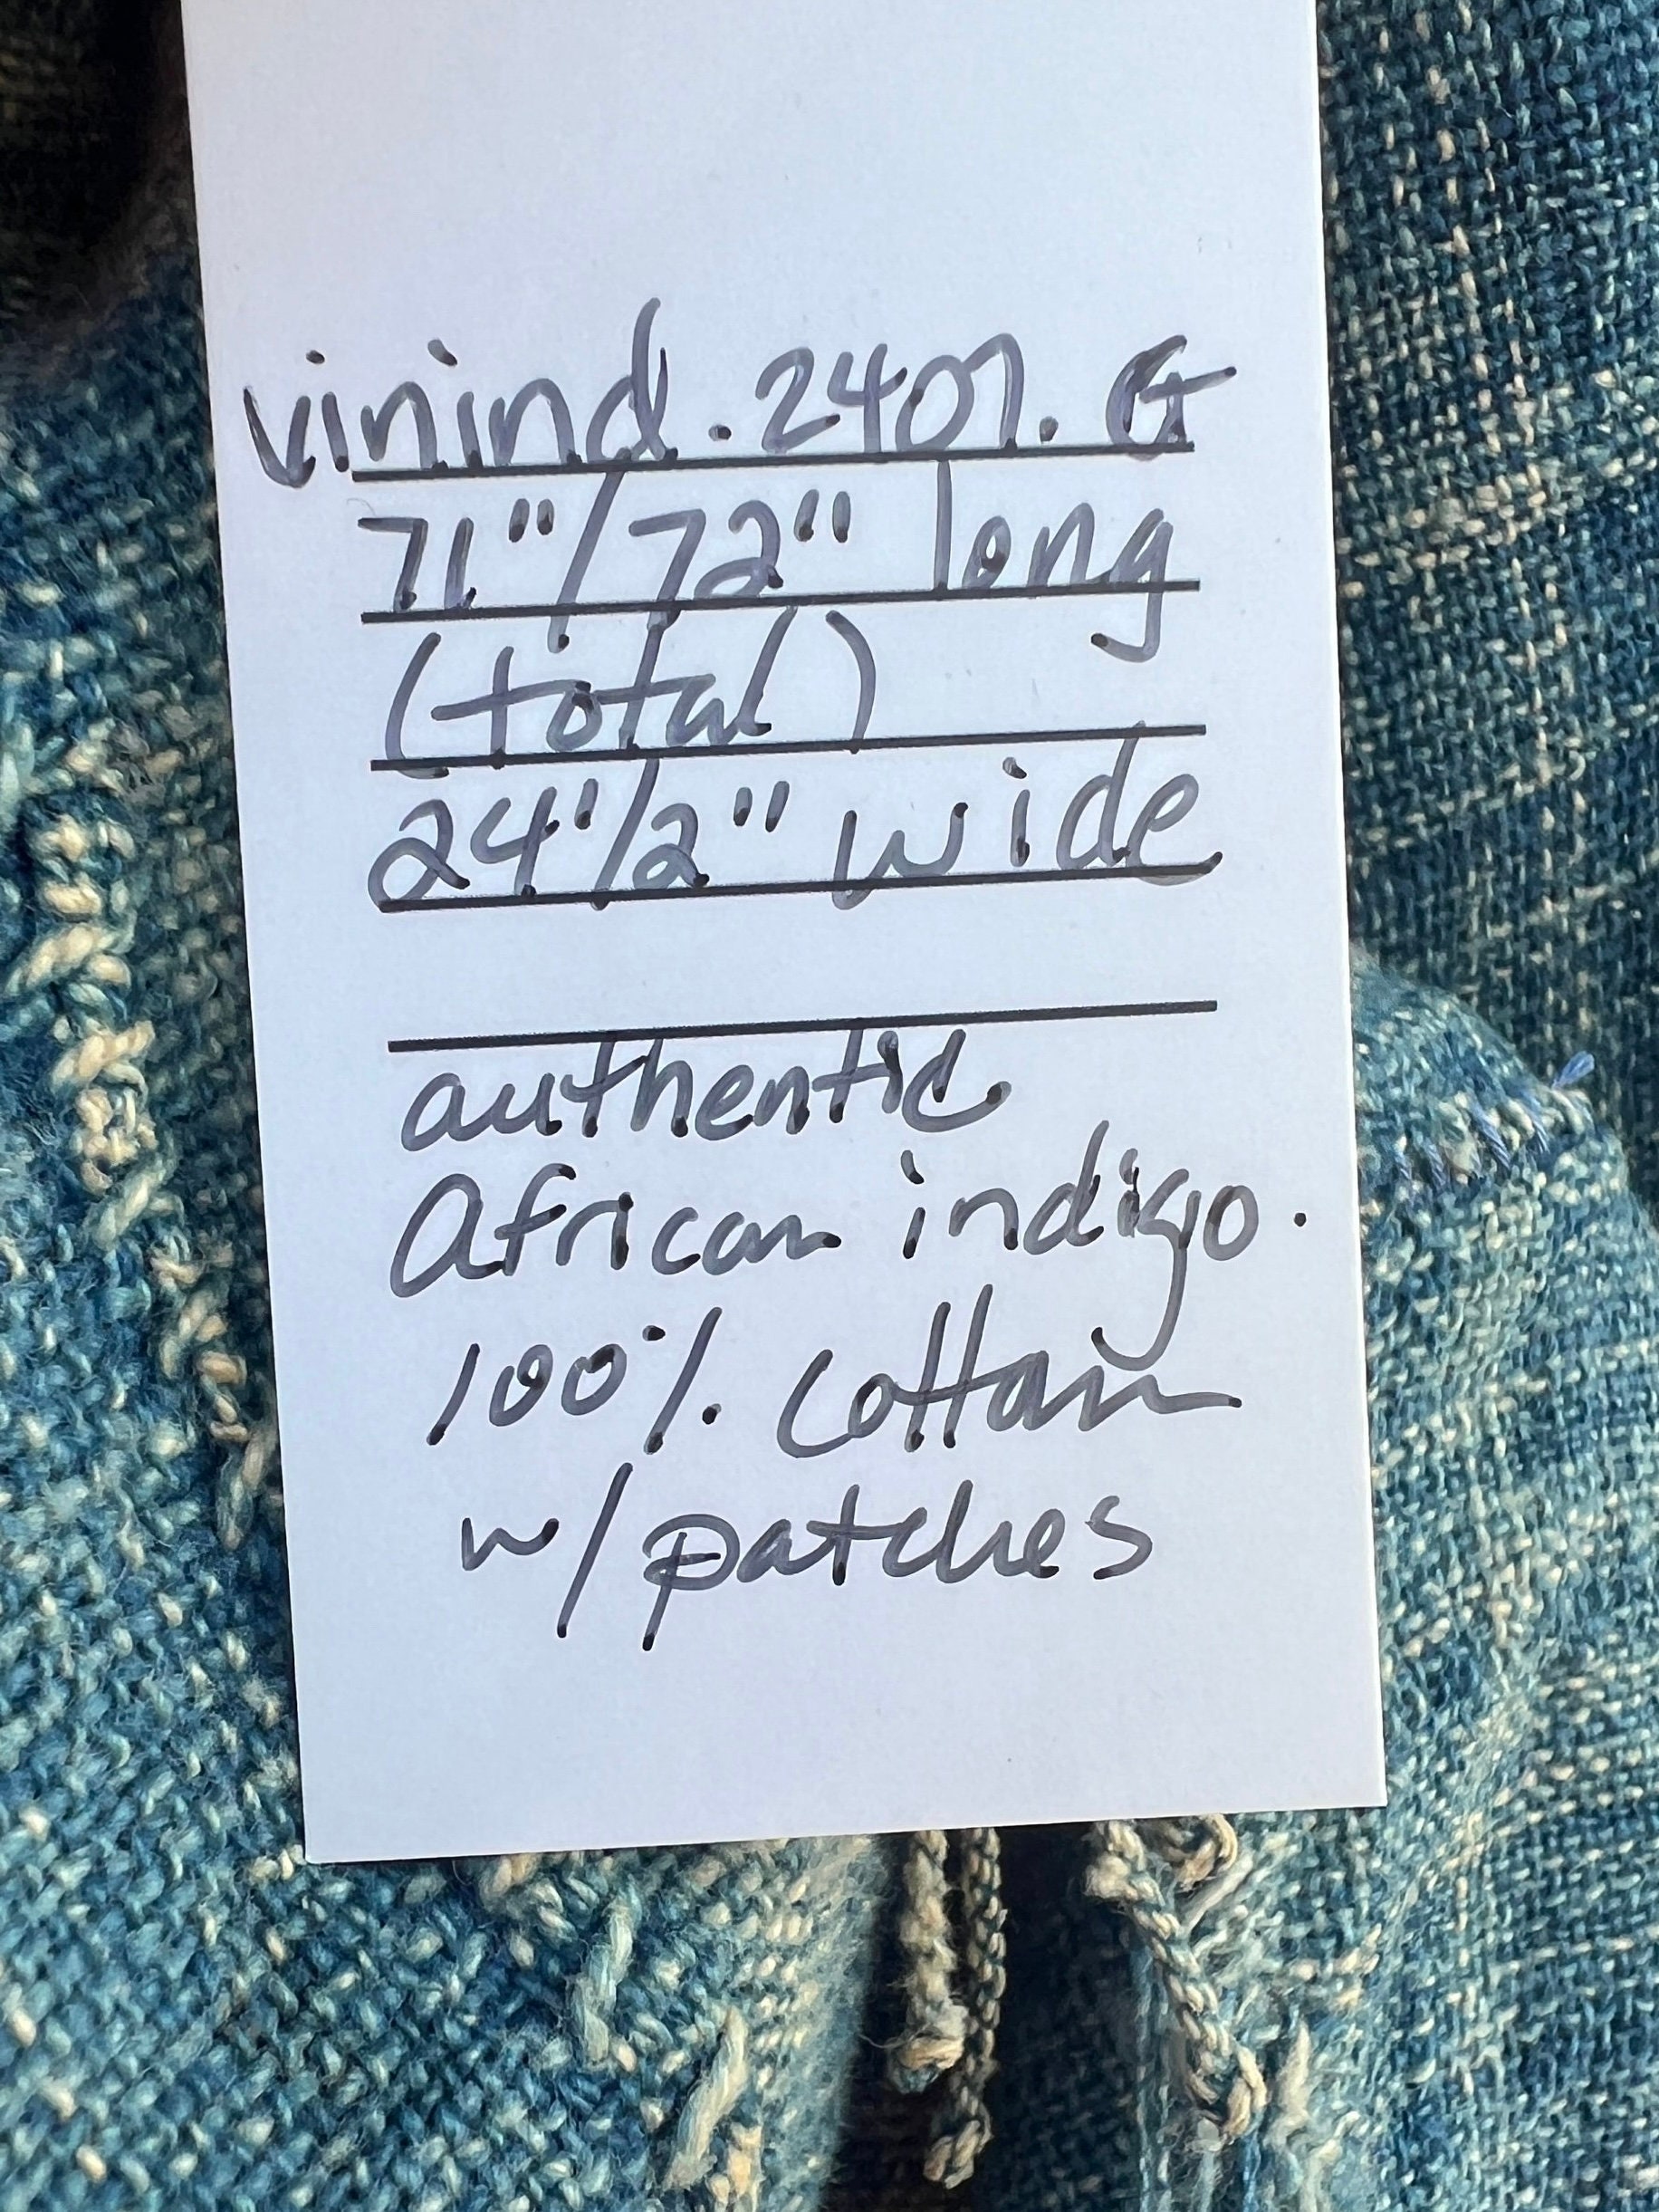 vinind.2407.G
71"/72" long
(total)
24 1/2" wide
authentic
African indigo.
100% cotton
w/patches